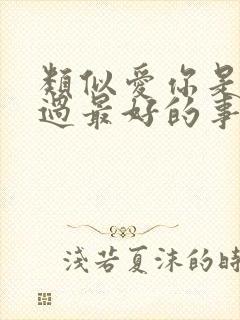 類似愛你是
過最好的事
淺若夏沫的時